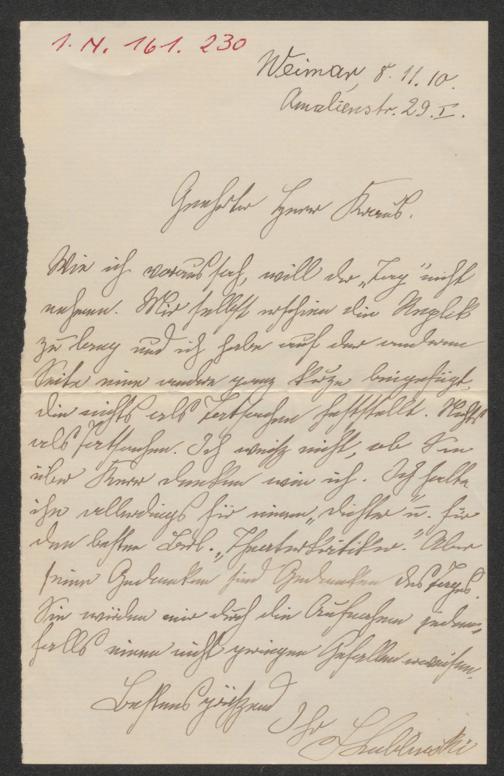 I. N. 161. 230
Weimar, 8. 11. 10.
Amalienstr. 29. I.
Geehrter Herr Kraus.
Wie ich voraussah, will der „Tag" nicht
nehmen. Mir selbst erschien die Replik
zu lang und ich habe auf der anderen
Seite eine andre ganz kurze beigefügt,
die nichts als Tatsachen feststellt. Nichts
als Tatsachen. Ich weiß nicht, ob Sie
über Kerr denken wie ich. Ich halte
ihn allerdings für einen „Dichter" u. für
den besten Berl. „Theaterkritiker." Aber
seine Gedanken sind Gedanken des Tages.
Sie würden mir durch die Aufnahme jeden-
falls einen nicht geringen Gefallen erweisen.
Bestens grüßend
Ihr SLublinski